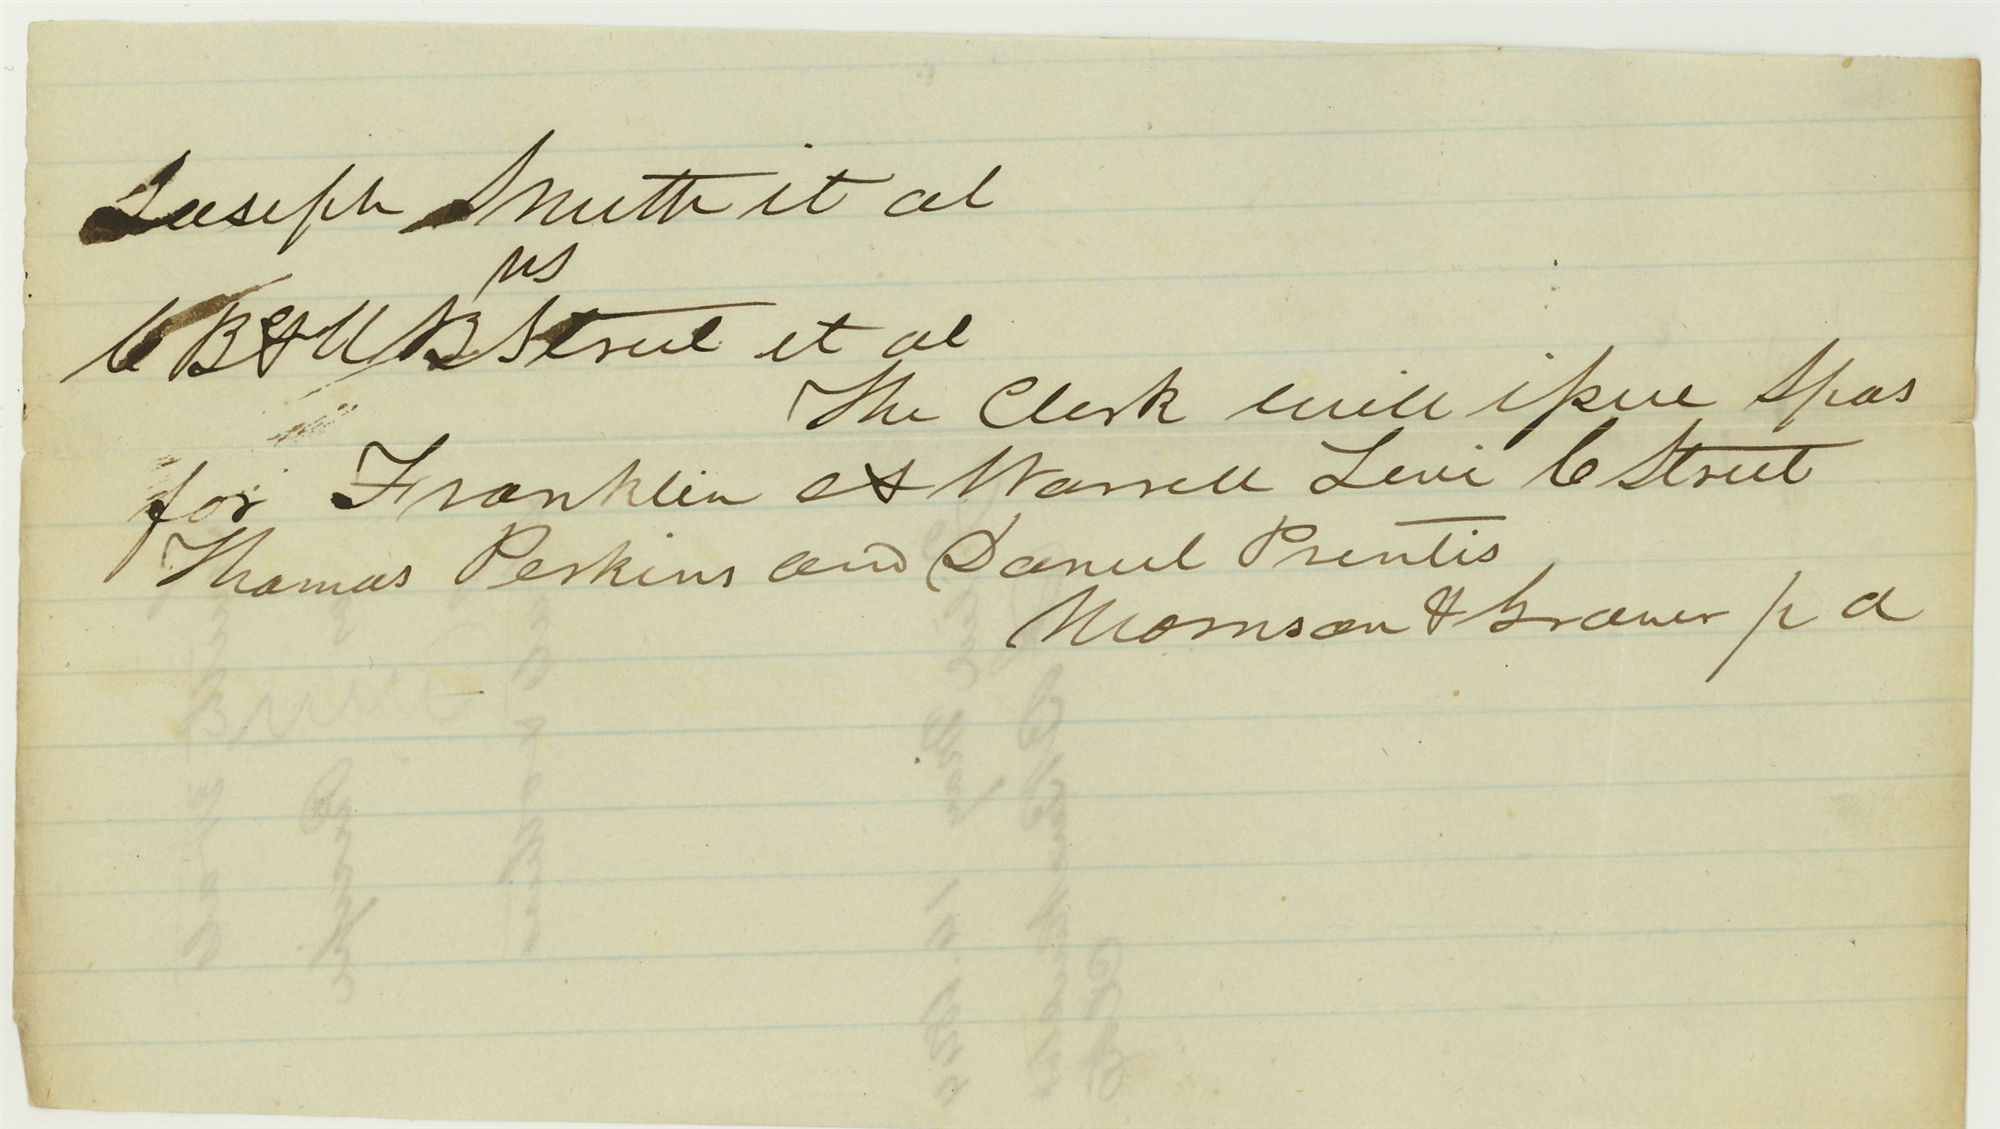 Joseph Smith et al
vs
C B & N B Street et al
The Clerk will issue Spas
for Franklin A Worrell Levi C Street
Thomas Perkins and Daniel Prentis
Morrison & Graver p a